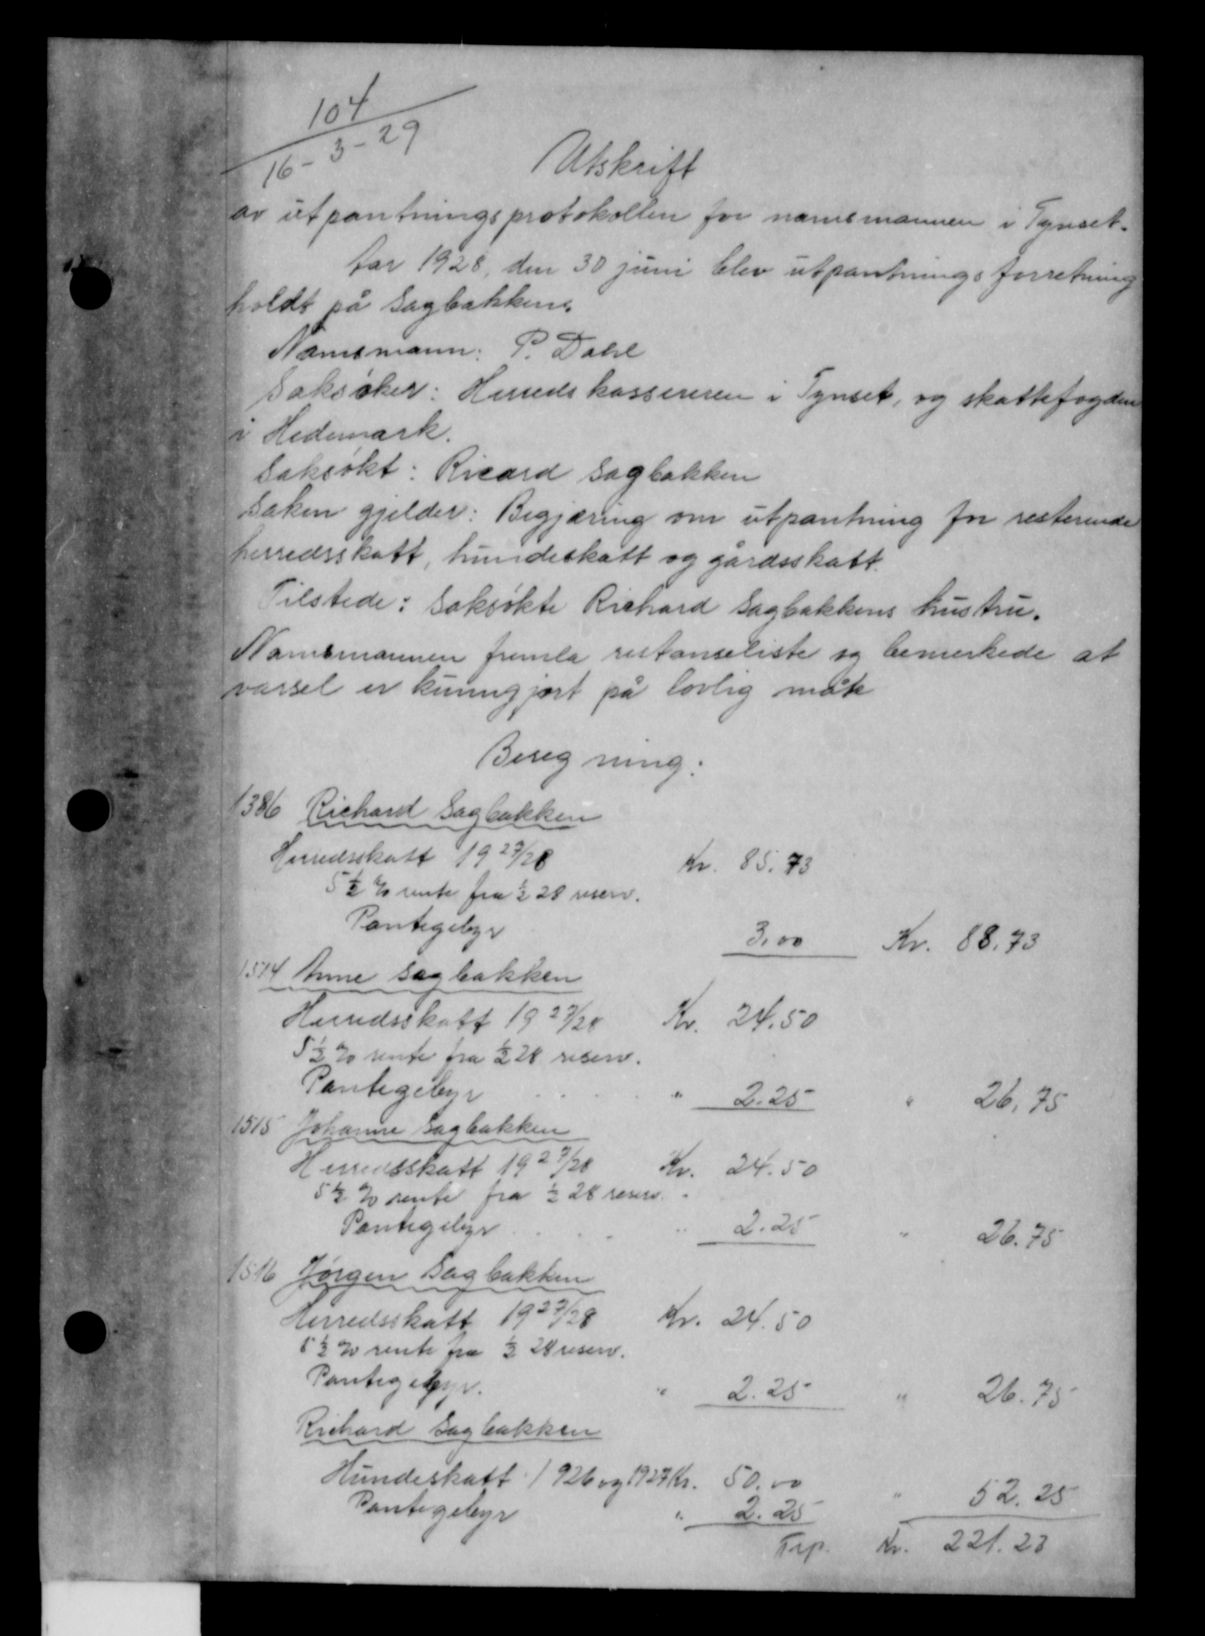 104
16-3-29
Utskrift
av utpantningsprotokollen for namsmannen i Tynset.
År 1928, den 30 juni blev utpantningsforretning
holdt på Sagbakken.
Namsmann: P. Dahl
Saksøker: Herredskassereren i Tynset, og skattefogden
i Hedemark.
Saksøkt: Ricard Sagbakken
Saken gjelder: Begjæring om utpantning for resterende
herredsskatt, hundeskatt og gårdsskatt.
Tilstede: Saksøkte Richard Sagbakkens hustru.
Namsmannen fremla restanseliste og bemerkede at
varsel er kunngjort på lovlig måte
Beregning:
1386 Richard Sagbakken
Herredsskatt 1927/28 Kr. 85.73
5 1/2 % rente fra 1/2 28 reserv.
Pantegebyr 3.00 Kr. 88.73
1514 Anne Sagbakken
Herredsskatt 1927/28 Kr. 24.50
5 1/2 % rente fra 1/2 28 reserv.
Pantegebyr . . . . " 2.25 " 26.75
1515 Johanne Sagbakken
Herredsskatt 1927/28 Kr. 24.50
5 1/2 % rente fra 1/2 28 reserv.
Pantegebyr . . . . " 2.25 " 26.75
1516 Jørgen Sagbakken
Herredsskatt 1927/28 Kr. 24.50
5 1/2 % rente fra 1/2 28 reserv.
Pantegebyr. " 2.25 " 26.75
Richard Sagbakken
Hundeskatt 1926 og 1927 Kr. 50.00
Pantegebyr " 2.25 " 52.25
Trp. Kr. 221.23